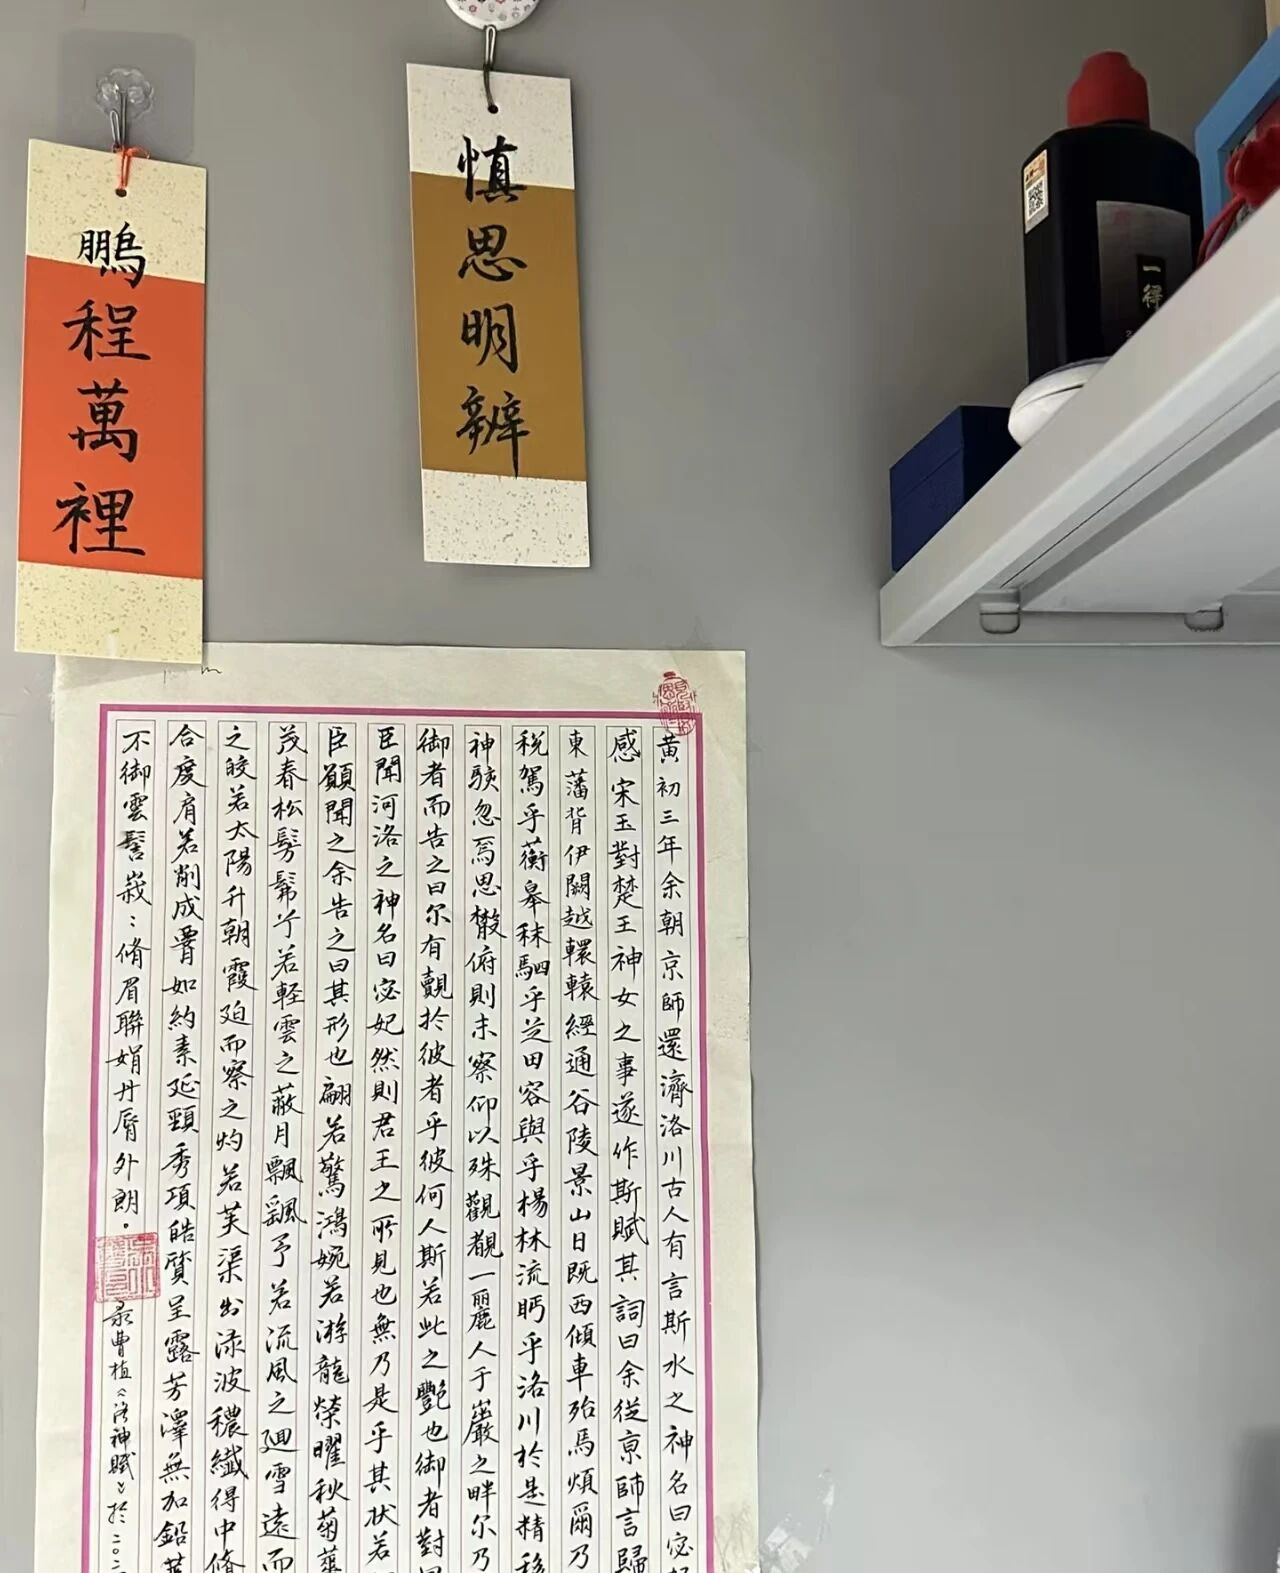 鵬程萬裡
慎思明辨
一得
黄初三年余朝京師還濟洛川古人有言斯水之神名曰宓
感宋玉對楚王神女之事遂作斯賦其詞曰余從京師言歸
東藩背伊闕越轘轅經通谷陵景山日既西傾車殆馬煩爾乃
税駕乎蘅皋秣駟乎芝田容與乎楊林流眄乎洛川於是精移
神駭忽焉思散俯則未察仰以殊觀覩一麗人于巖之畔尔乃
御者而告之曰尔有覿於彼者乎彼何人斯若此之艷也御者對
臣聞河洛之神名曰宓妃然則君王之所見也無乃是乎其状若
臣願聞之余告之曰其形也翩若驚鴻婉若游龍榮曜秋菊
茂春松髣髴兮若軽雲之蔽月飄飖兮若流風之廻雪遠而
之皎若太陽升朝霞廹而察之灼若芙渠出渌波穠纖得中脩
合度肩若削成腰如約素延頸秀項皓質呈露芳澤無加鉛
不御雲髻峩：脩眉聯娟丹脣外朗。
录曹植《洛神赋》於二〇二